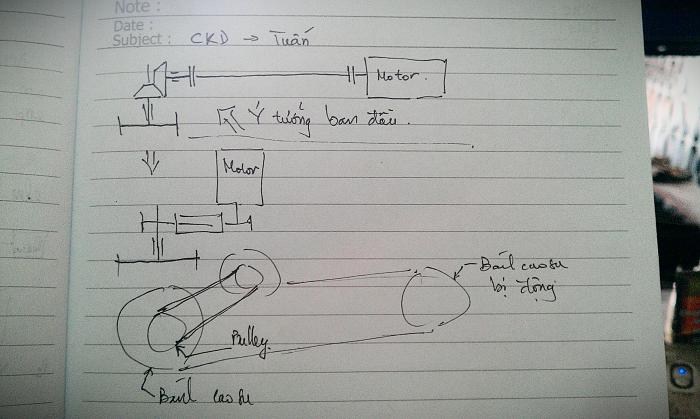 Note :
Date :
Subject : CKD → Tuấn
Motor.
Ý tưởng ban đầu.
Motor
Bánh cao su
bị động
Pulley
Bánh cao su